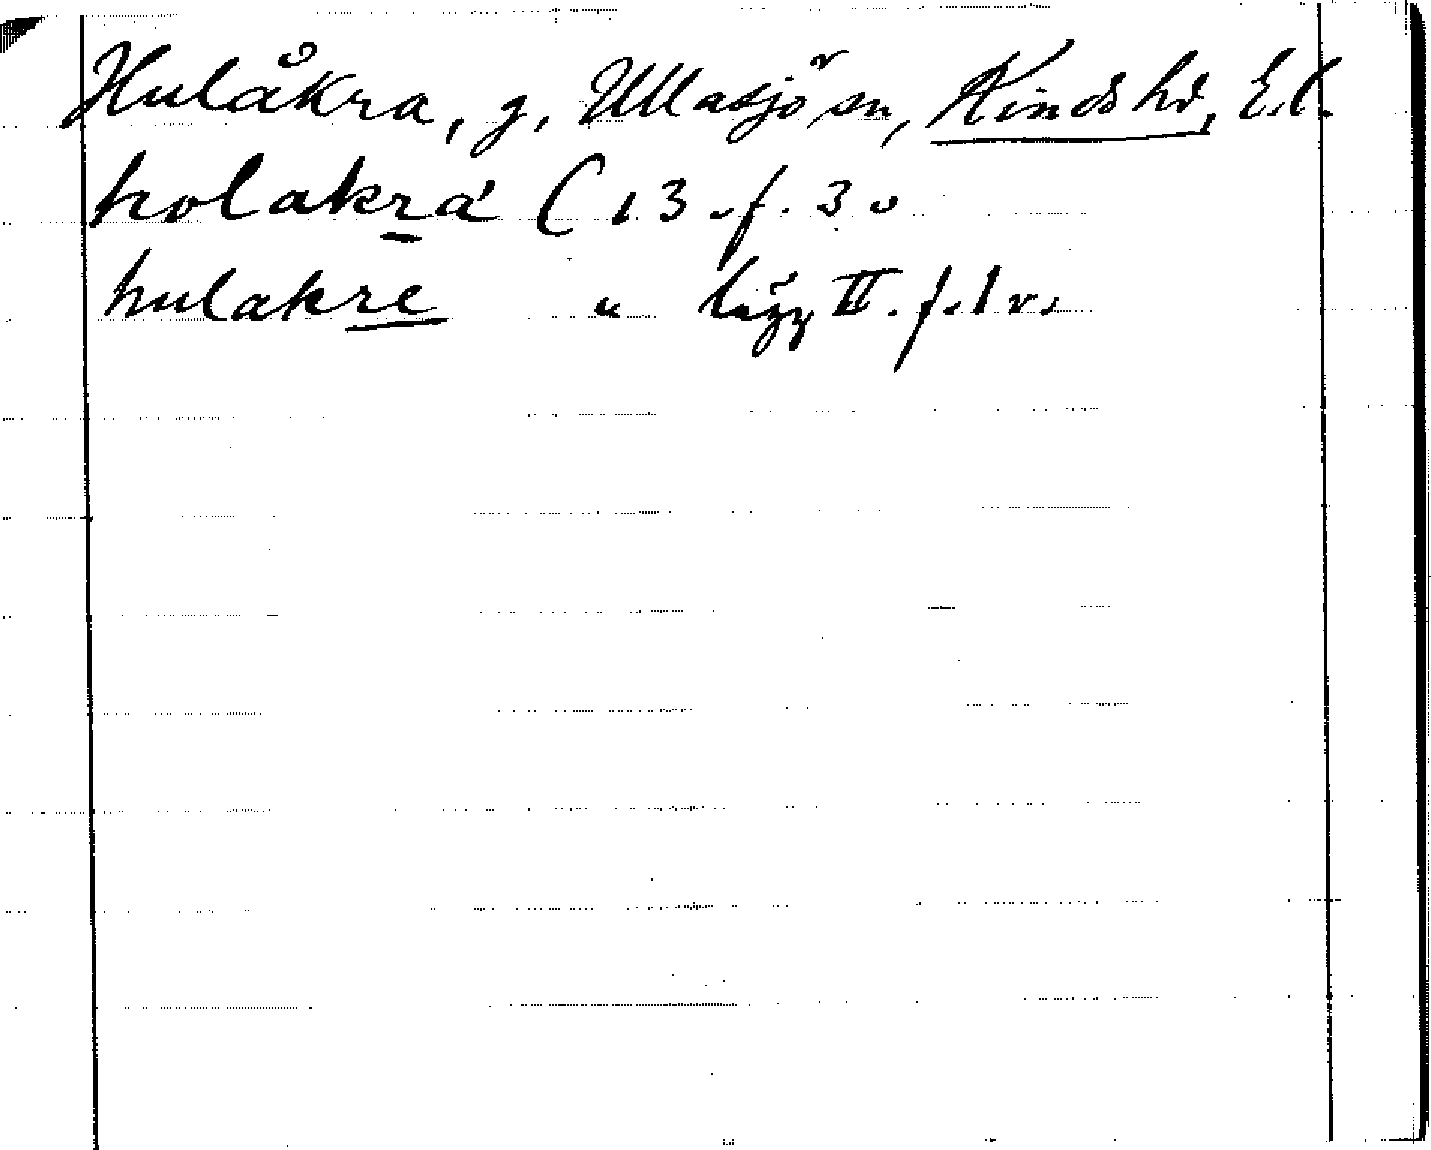 Hulåkra, g, Ullasjö sn, Kinds hd, E.l.
holakra ( 13 . f. 3 v
hulakre " lägg II. f. 1 v.